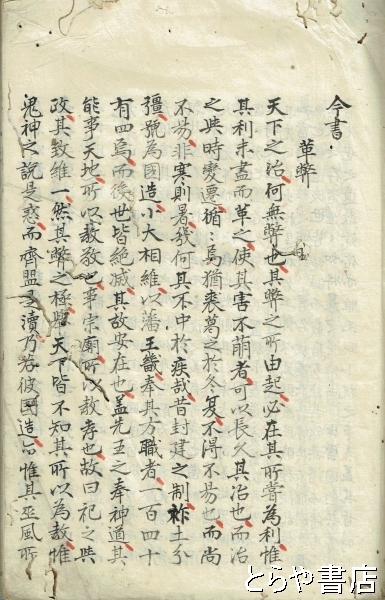 今書
革弊
天下之治何無弊也其弊之所由起必在其所嘗為利惟
其利未盡而革之使其害不萠者可以長久其治也而治
之與時變遷循〻焉猶裘葛之於冬夏不得不易也而尚
不易非寒則暑幾何其不中於疾哉昔封建之制祚土分
彊號為國造小大相維以藩王畿奉其方職者一百四十
有四焉而後世皆絶滅其故安在也盖先王之奉神道其
能事天地所以教敬也事宗廟所以教孝也故曰祀之與
政其致維一然其弊之極與天下皆不知其所以為教惟
鬼神之説是惑而齊盟瀆乃若彼國造亦惟其巫風所
とらや書店